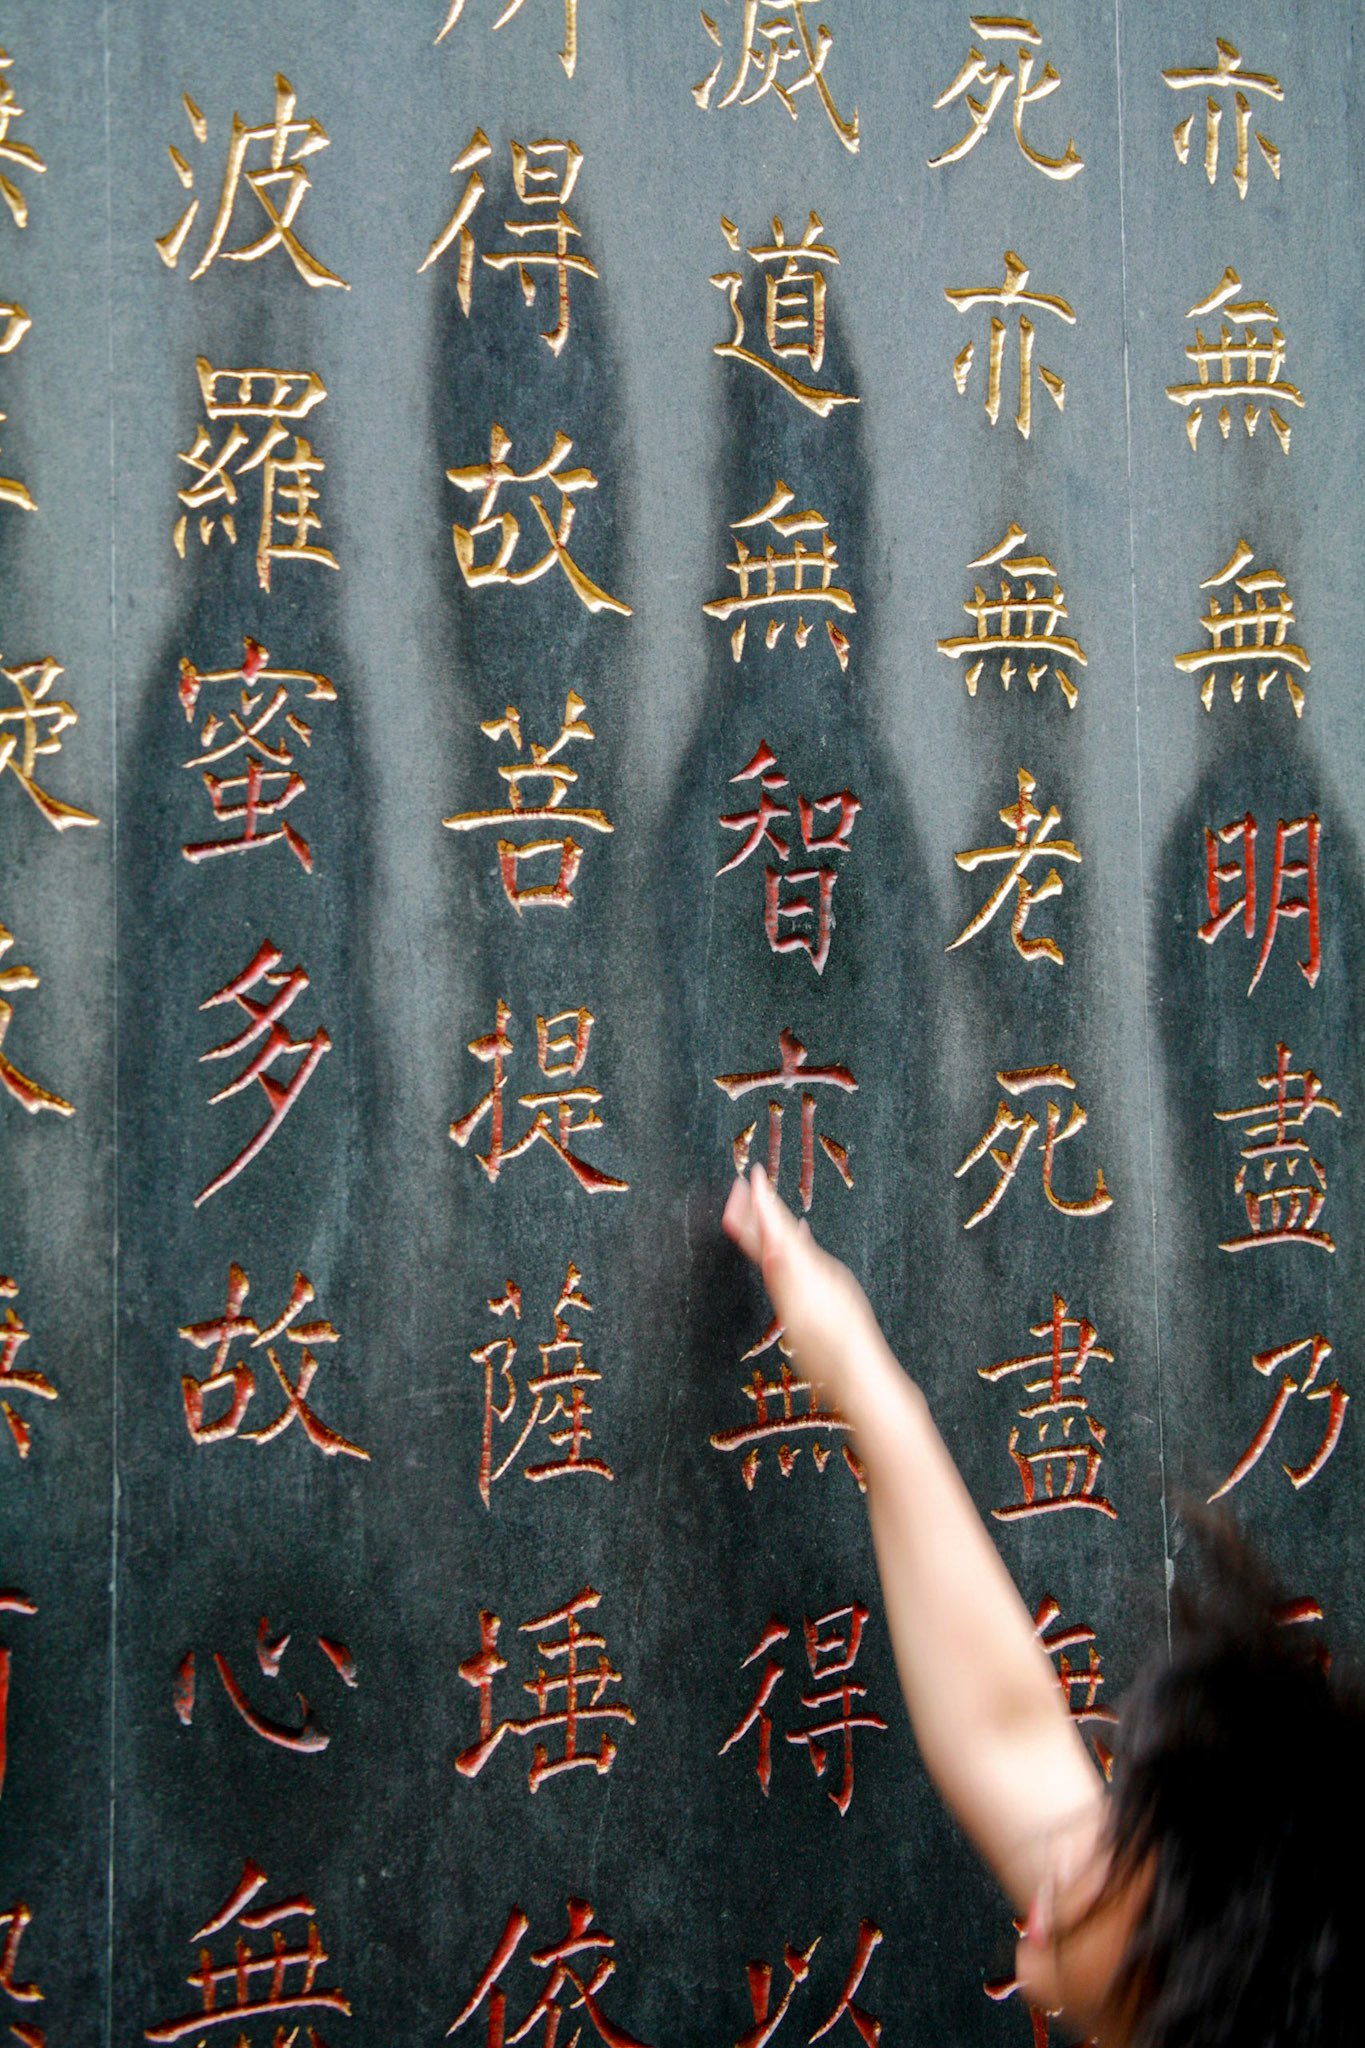 亦無無明盡乃
死亦無老死盡無
滅道無智亦無得以
所得故菩提薩埵依
波羅蜜多故心無
礙故無